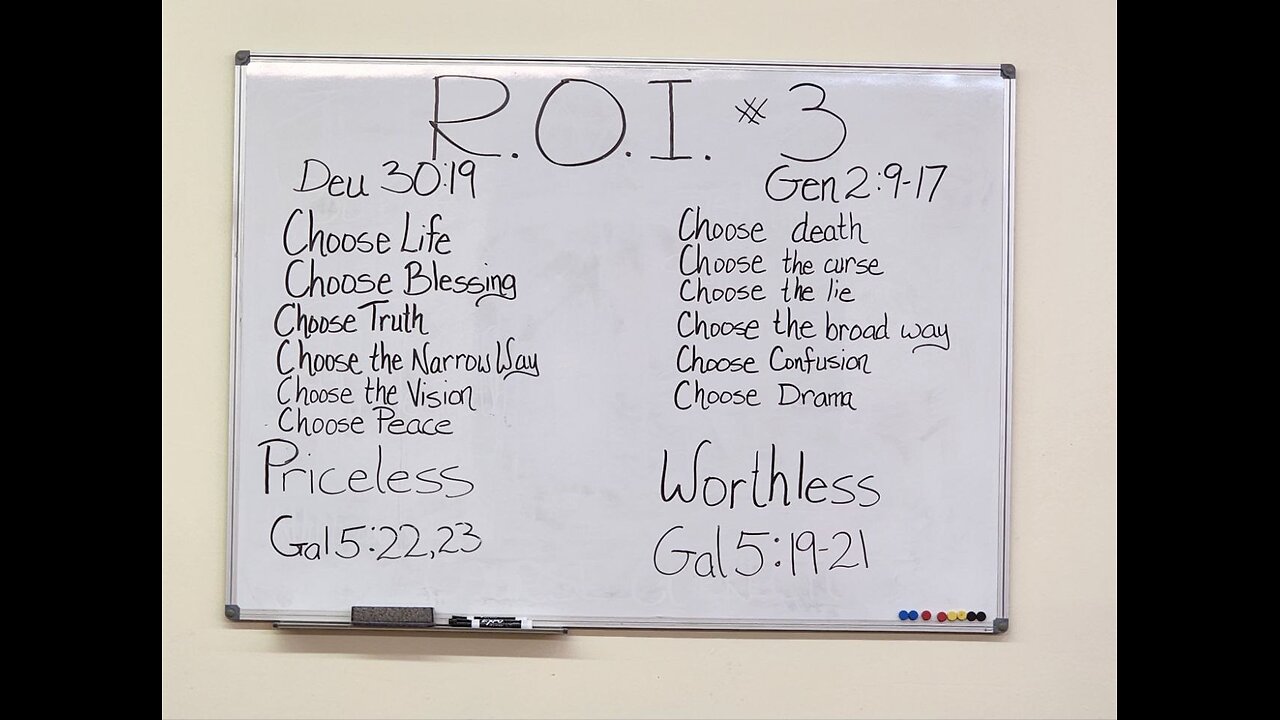 R.O.I. #3
Deu 30:19
Choose Life
Choose Blessing
Choose Truth
Choose the Narrow Way
Choose the Vision
Choose Peace
Priceless
Gal 5:22,23
Gen 2:9-17
Choose death
Choose the curse
Choose the lie
Choose the broad way
Choose Confusion
Choose Drama
Worthless
Gal 5:19-21